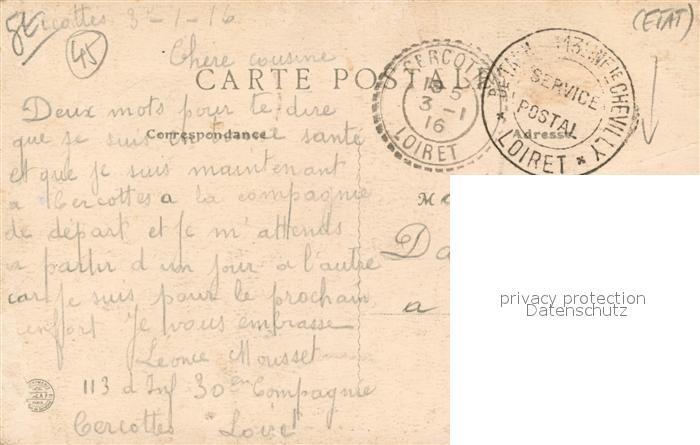 Cercottes 3-1-16
(ETAT)
45
Chere cousine
CARTE POSTALE
CERCOTTES
3 -1
16
LOIRET
113e INFie CHEVILLY
SERVICE
POSTAL
* LOIRET *
Correspondance
Adresse
Deux mots pour te dire
que je suis en bonne santé
et que je suis maintenant
a Cercottes a la compagnie
de départ et je m'attends
a partir d un jour a l'autre
car je suis pour le prochain
renfort Je vous embrasse
Leonce Mousset
113 d Inf 30em Compagnie
Cercottes "Loiret"
M
Da
a
privacy protection
Datenschutz